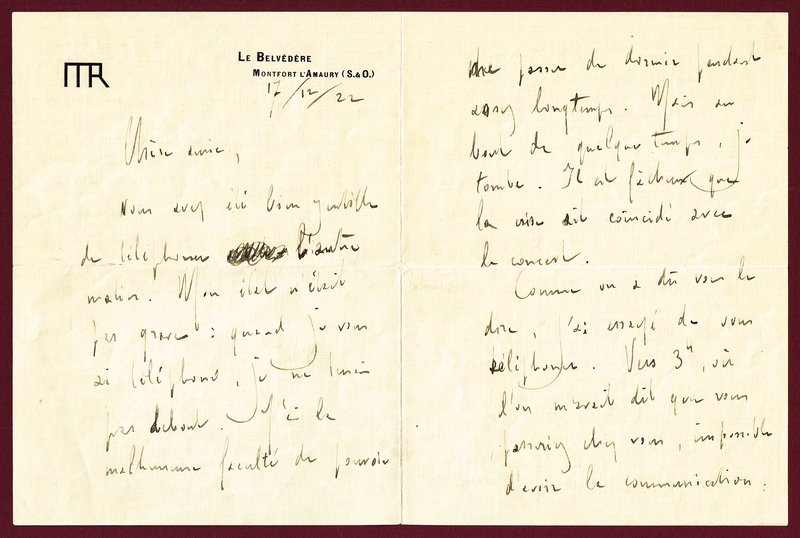 MR
LE BELVÉDÈRE
MONTFORT L'AMAURY (S.&O.)
17/12/22
Chère amie,
Vous avez été bien gentille
de téléphoner l'autre
matin. Mon état n'était
pas grave : quand je vous
ai téléphoné, je ne tenais
pas debout. J'ai la
malheureuse faculté de pouvoir
me passer de dormir pendant
assez longtemps. Mais au
bout de quelque temps, je
tombe. Il est fâcheux que
la crise ait coïncidé avec
le concert.
Comme on a dû vous le
dire, j'ai essayé de vous
téléphoner. Vers 3h, où
l'on m'avait dit que vous
passeriez chez vous, impossible
d'avoir la communication :